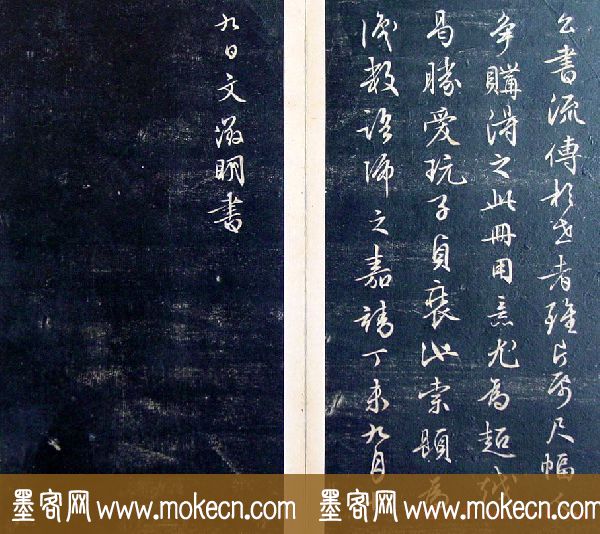 公書流傳於世者雖片紙尺幅人
争購得之此冊用意尤為超越
曷勝愛玩子貞裝池索題為
識数語歸之嘉靖丁未九月
九日文徵明書
墨客网 www.mokecn.com
墨客网 www.mokecn.com